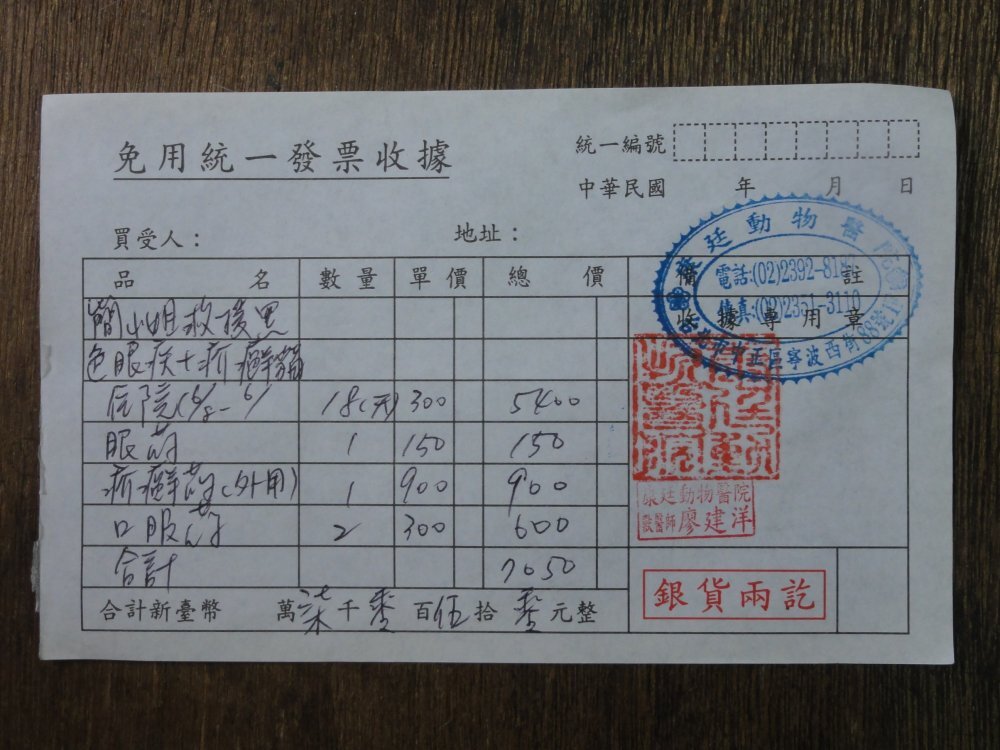 免用統一發票收據
統一編號
中華民國 年 月 日
買受人： 地址：
品名 數量 單價 總價 備註
收據專用章
簡小姐救援黑
色眼疾+疥癬貓
住院 18(天) 300 5400
眼葯 1 150 150
疥癬葯(外用) 1 900 900
口服葯 2 300 600
合計 7050
合計新臺幣 萬柒千零百伍拾零元整
動物醫院
電話:(02)2392-81
傳真:(02)2351-3110
北市中正區寧波西街88號1
康廷動物醫院
獸醫師 廖建洋
銀貨兩訖